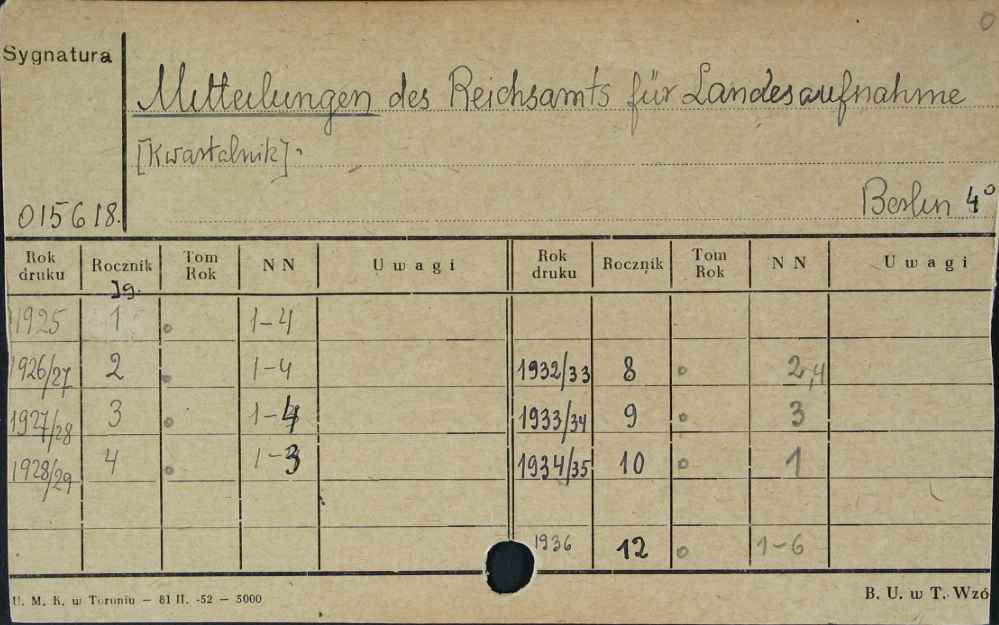 0
Sygnatura
Mitteilungen des Reichsamts für Landesaufnahme
[Kwartalnik].
Berlin 4°
015618.
Rok druku Rocznik Tom Rok NN Uwagi Rok druku Rocznik Tom Rok NN Uwagi
Jg.
1925 1 1-4
1926/27 2 1-4 1932/33 8 2,4
1927/28 3 1-4 1933/34 9 3
1928/29 4 1-3 1934/35 10 1
1936 12 1-6
U. M. K. w Toruniu — 81 II. -52 — 5000
B. U. w T. Wzó